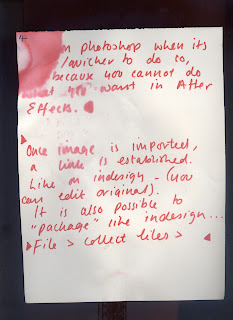 4
in photoshop when its
/quicker to do so,
because you cannot do
what you want in After
Effects.
Once image is imported,
a link is established.
Like in indesign - (you
can edit original).
It is also possible to
"package" like indesign...
File > collect files >